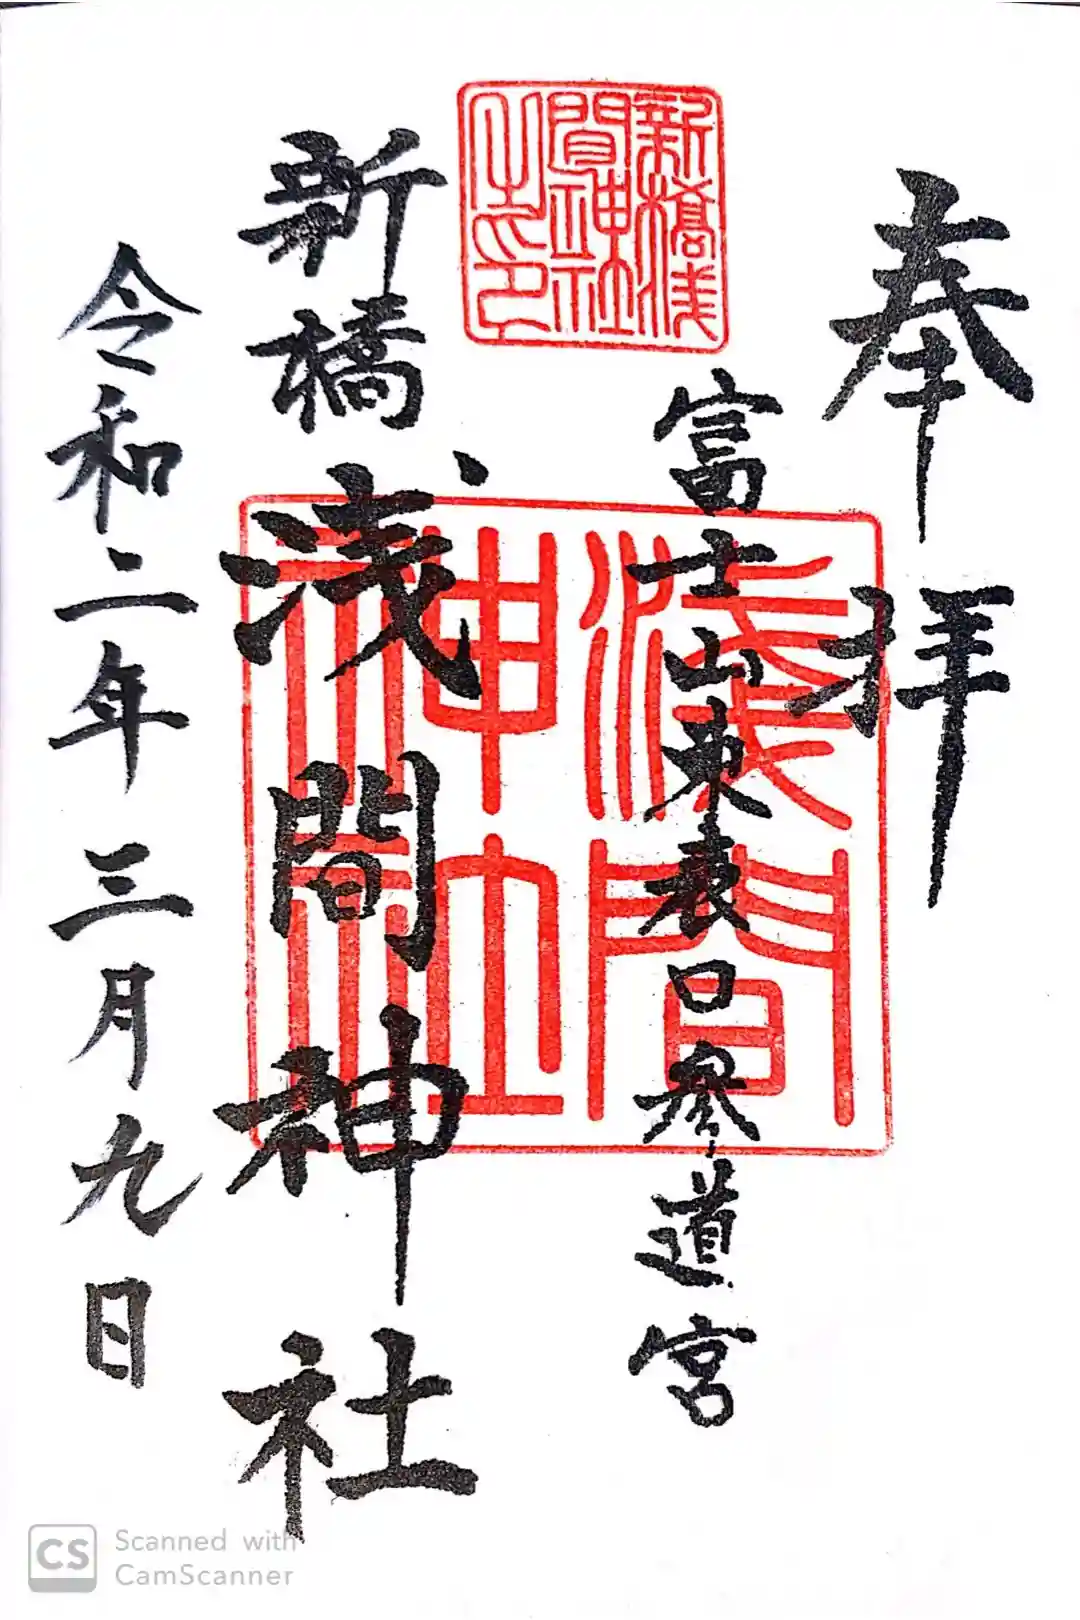 奉拝
富士山東表口参道宮
新橋浅間神社之印
浅間神社
新橋浅間神社
令和二年三月九日
CS
Scanned with
CamScanner